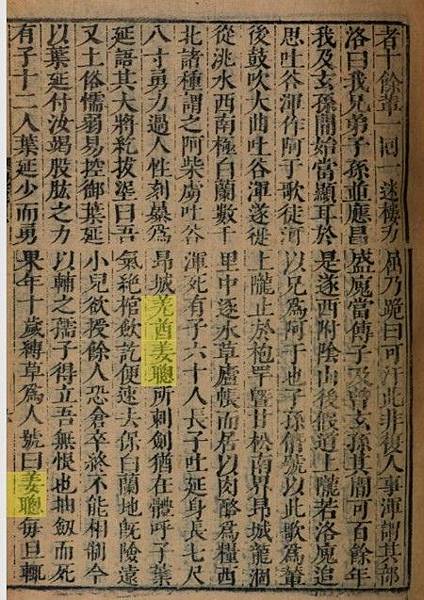 者十餘輩一回一迷樓力屈乃跪曰可汗此非復人事渾謂其部
洛曰我兄弟子孫並應昌盛廆當傳子及曾玄孫其間可百餘年
我及玄孫間始當顯耳於是遂西附陰山後假道上隴若洛廆追
思吐谷渾作阿于歌徒河以兄爲阿于也子孫僭號以此歌爲輦
後鼓吹大曲吐谷渾遂徙上隴止於枹罕暨甘松南界昂城龍涸
從洮水西南極白蘭數千里中逐水草廬帳而居以肉酪爲糧西
北諸種謂之阿柴虜吐谷渾死有子六十人長子吐延身長七尺
八寸勇力過人性刻暴爲昂城羌酋姜聰所刺劍猶在體呼子葉
延語其大將紇拔埿曰吾氣絕棺歛訖便速去保白蘭地既險遠
又土俗懦弱易控御葉延小兒欲授餘人恐倉卒終不能相制今
以葉延付汝竭股肱之力以輔之孺子得立吾無恨也抽劒而死
有子十二人葉延少而勇果年十歲縛草爲人號曰姜聰每旦輒